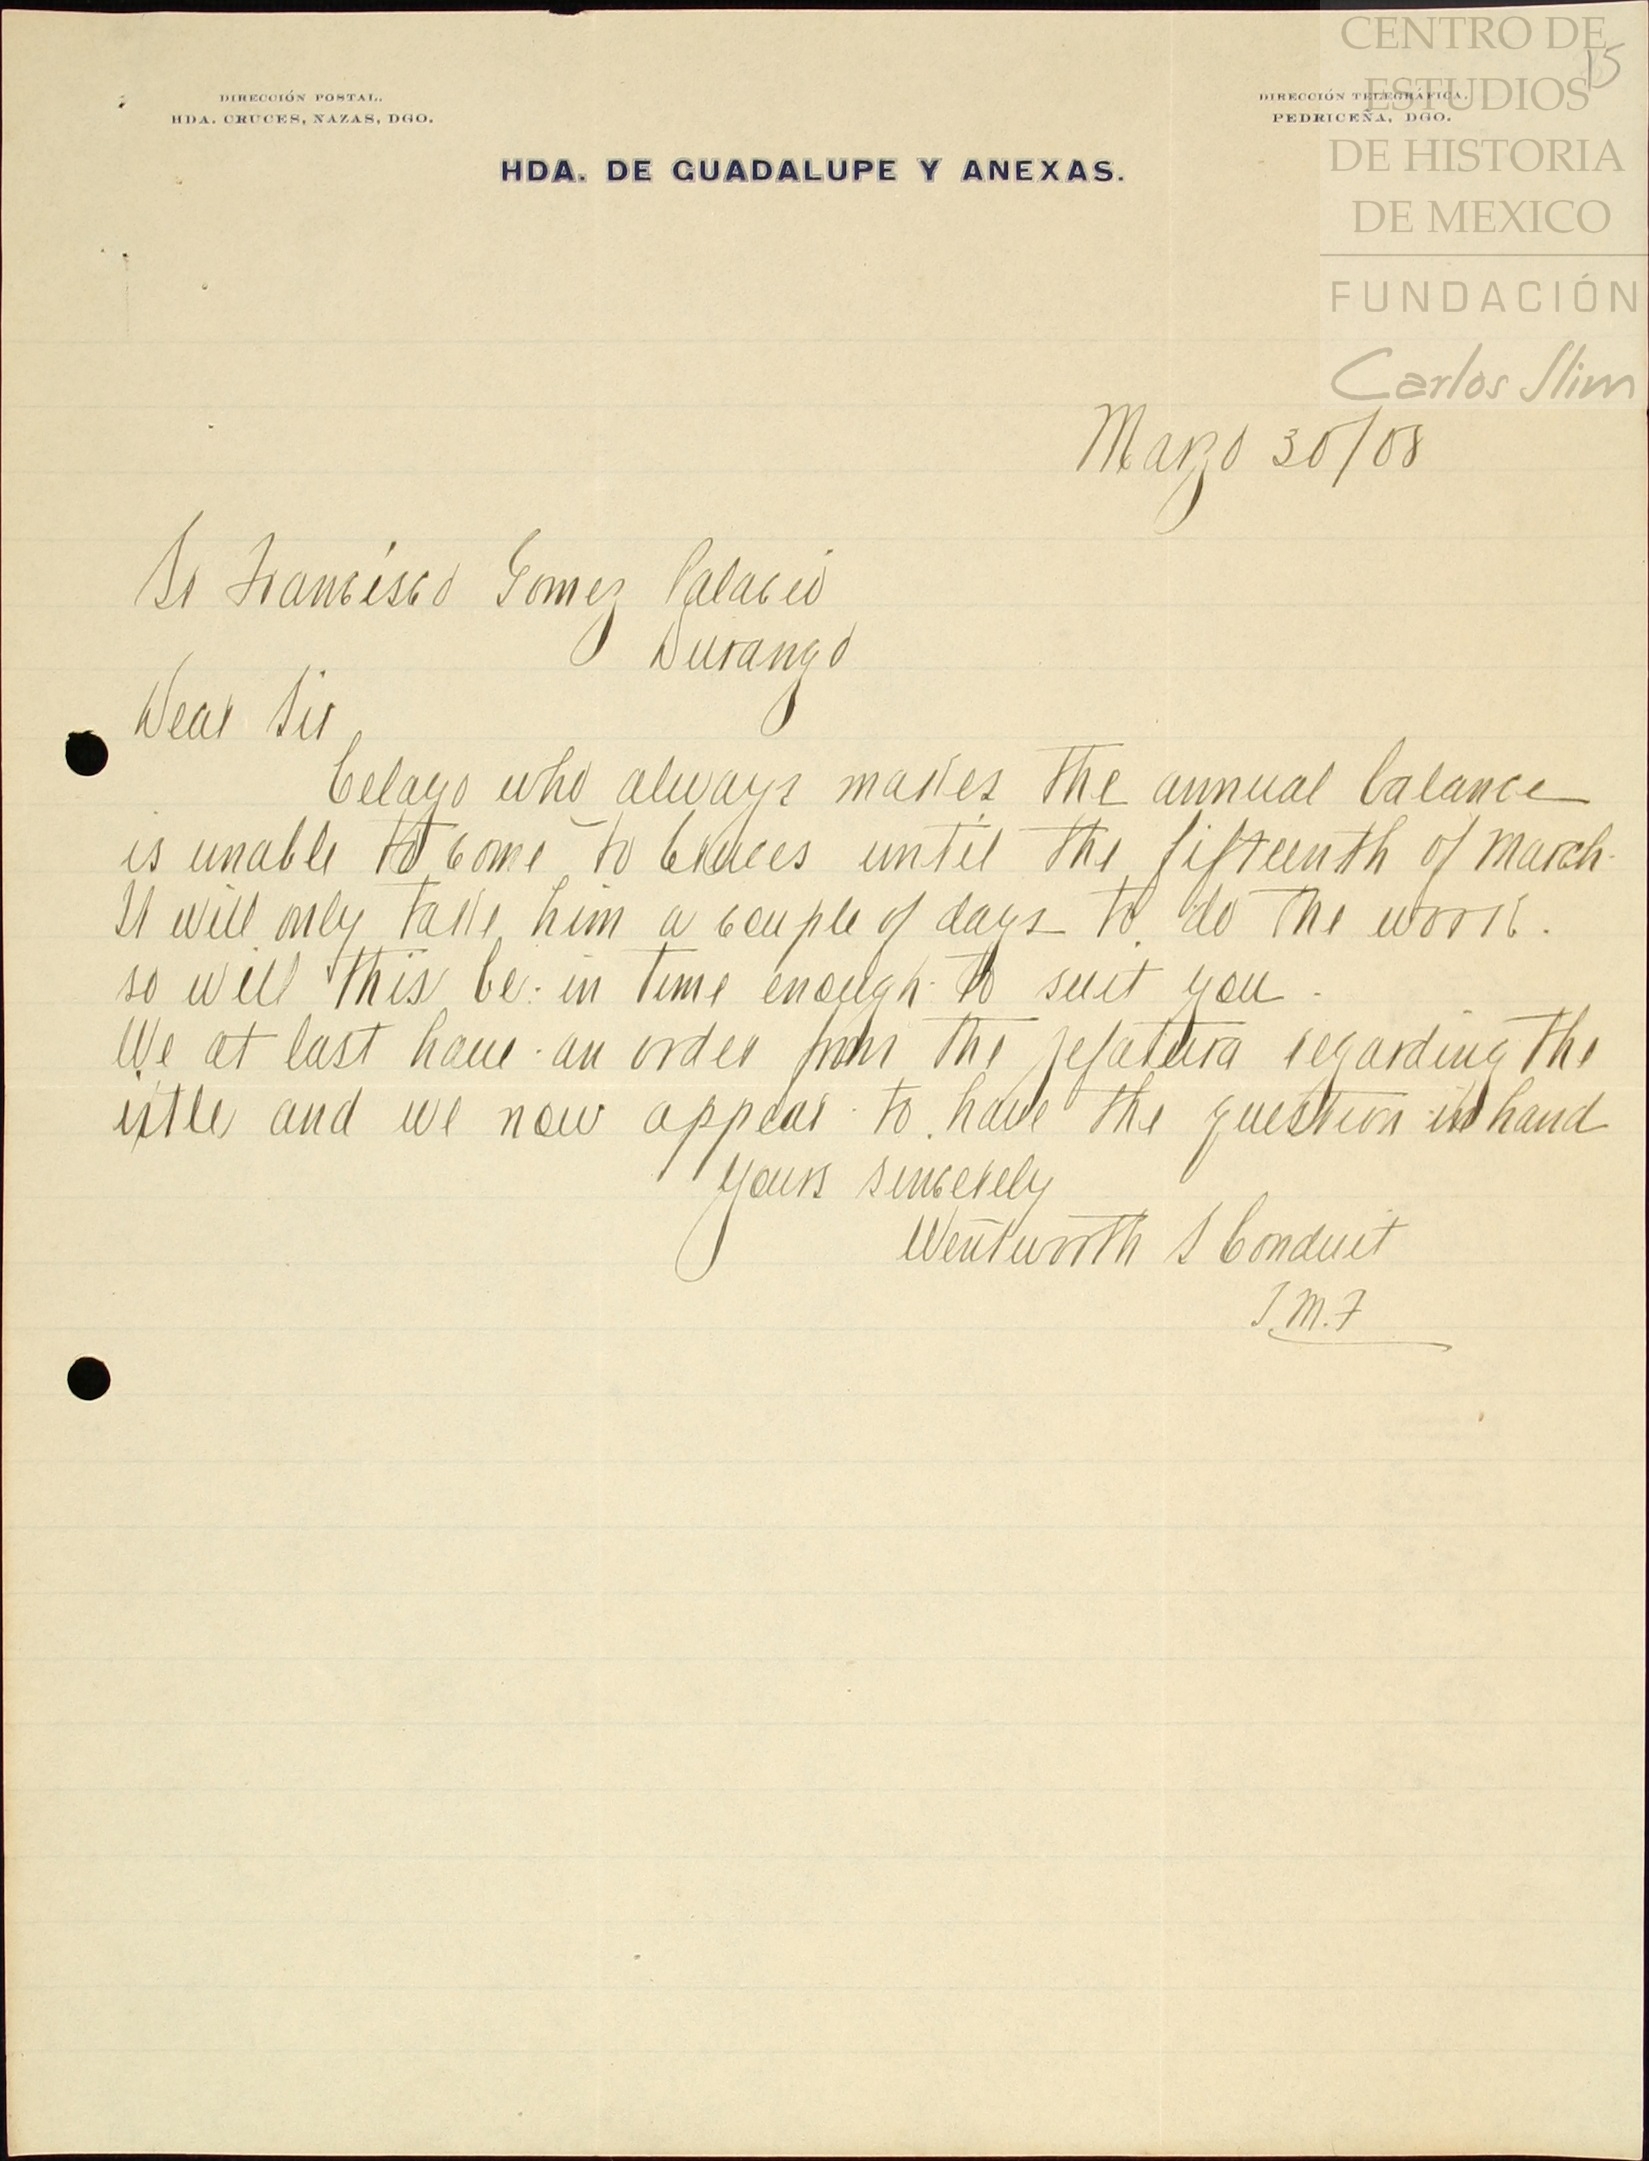 CENTRO DE
ESTUDIOS
DE HISTORIA
DE MEXICO
FUNDACIÓN
Carlos Slim
15
DIRECCIÓN POSTAL.
HDA. CRUCES, NAZAS, DGO.
DIRECCIÓN TELEGRÁFICA.
PEDRICEÑA, DGO.
HDA. DE GUADALUPE Y ANEXAS.
Marzo 30/08
Sr Francisco Gomez Palacio
Durango
Dear Sir
Celayo who always makes the annual balance
is unable to come to Cruces until the fifteenth of March.
It will only take him a couple of days to do the work.
so will this be in time enough to suit you.
We at last have an order from the jefatura regarding the
ixtle and we now appear to have the question in hand
Yours sincerely
Wentworth S Conduit
J.M.F